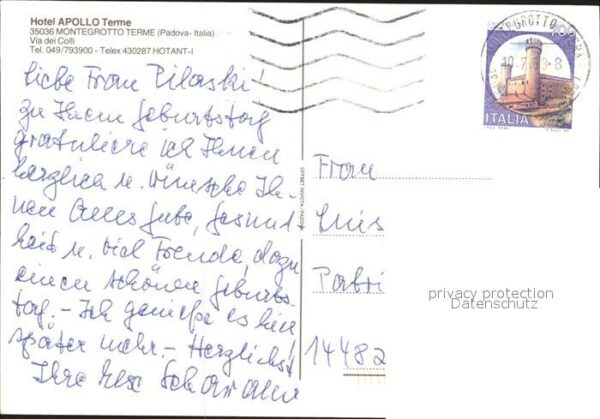 Hotel APOLLO Terme
35036 MONTEGROTTO TERME (Padova - Italia)
Via dei Colli
Tel. 049/793900 - Telex 430287 HOTANT-I
liebe Frau Pilaski!
zu Ihrem Geburtstag
gratuliere ich Ihnen
herzlich u. wünsche Ih-
nen Alles Gute, Gesund-
heit u. viel Freude, dazu
einen schönen Geburts-
tag. - Ich genieße es hier
später mehr. - Herzlichst
Ihre
700
ITALIA
Frau
Luis
Patri
14482
privacy protection
Datenschutz